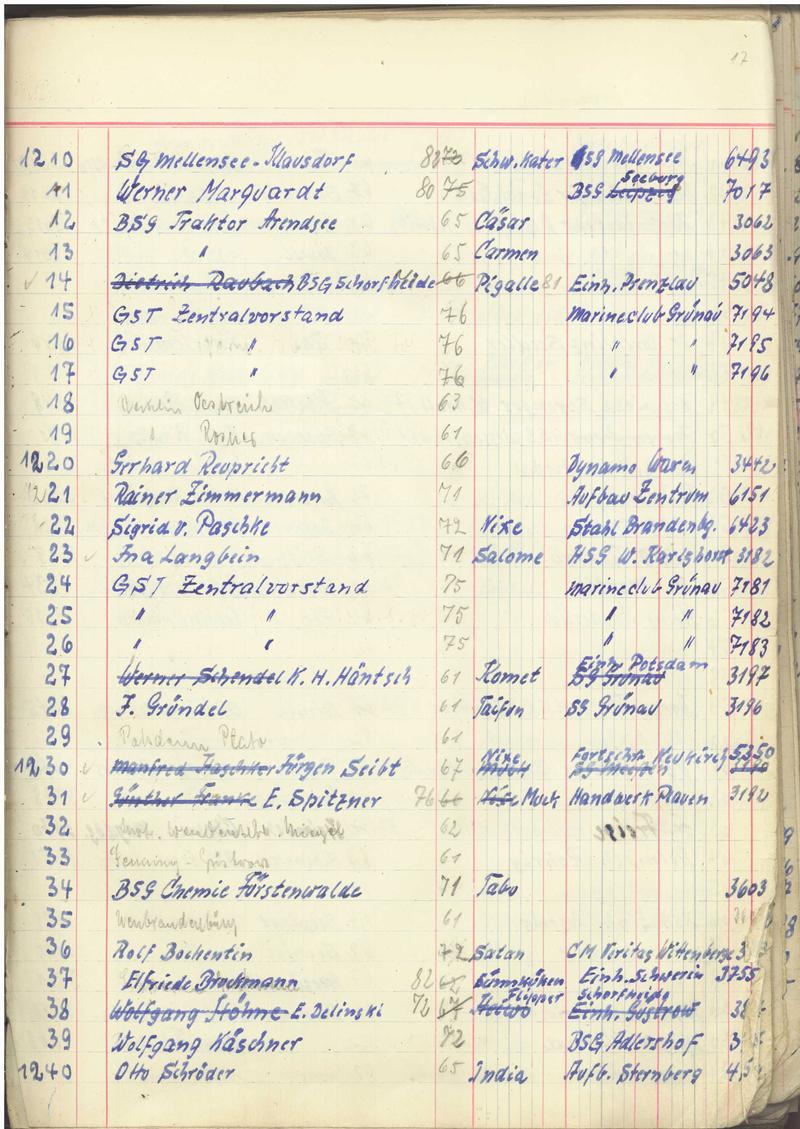 17
1210 SG Mellensee-Klausdorf 82 72 Schw. Kater BSG Mellensee 6493
11 Werner Marquardt 80 75 BSG Leipzig Seeburg 7017
12 BSG Traktor Arendsee 65 Cäsar 3062
13 " 65 Carmen 3063
14 Dietrich Raubach BSG Schorfheide 66 Pigalle 81 Einh. Prenzlau 5048
15 GST Zentralvorstand 76 Marineclub Grünau 7194
16 GST " 76 " " 7195
17 GST " 76 " " 7196
18 63
19 61
1220 Gerhard Reupricht 66 Dynamo Waren 3442
21 Rainer Zimmermann 71 Aufbau Zentrum 6151
22 Sigrid v. Paschke 72 Nixe Stahl Brandenbg. 6423
23 Ina Langbein 71 Salome HSG W. Karlshorst 3182
24 GST Zentralvorstand 75 Marineclub Grünau 7181
25 " " 75 " " 7182
26 " " 75 " " 7183
27 Werner Schendel K. H. Häntsch 61 Komet SG Grünau Einh. Potsdam 3197
28 F. Gründel 61 Taifun SG Grünau 3196
29 Potsdam Plato 61
1230 Manfred Jürgen Seibt 67 Nixe Fortschr. Neukirch 5350
31 Günther Franke E. Spitzner 76 66 Muck Handwerk Plauen 3192
32 62
33 Güstrow 61
34 BSG Chemie Fürstenwalde 71 Tabo 3603
35 61
36 Rolf Bochentin 72 Satan CM Veritas Wittenberge 3
37 Elfriede Brockmann 82 62 Einh. Schwerin 3755
38 Wolfgang Stöhne E. Delinski 72 67 Flipper Einh. Güstrow Schorfheide
39 Wolfgang Käschner 72 BSG Adlershof
1240 Otto Schröder 65 India Aufb. Sternberg